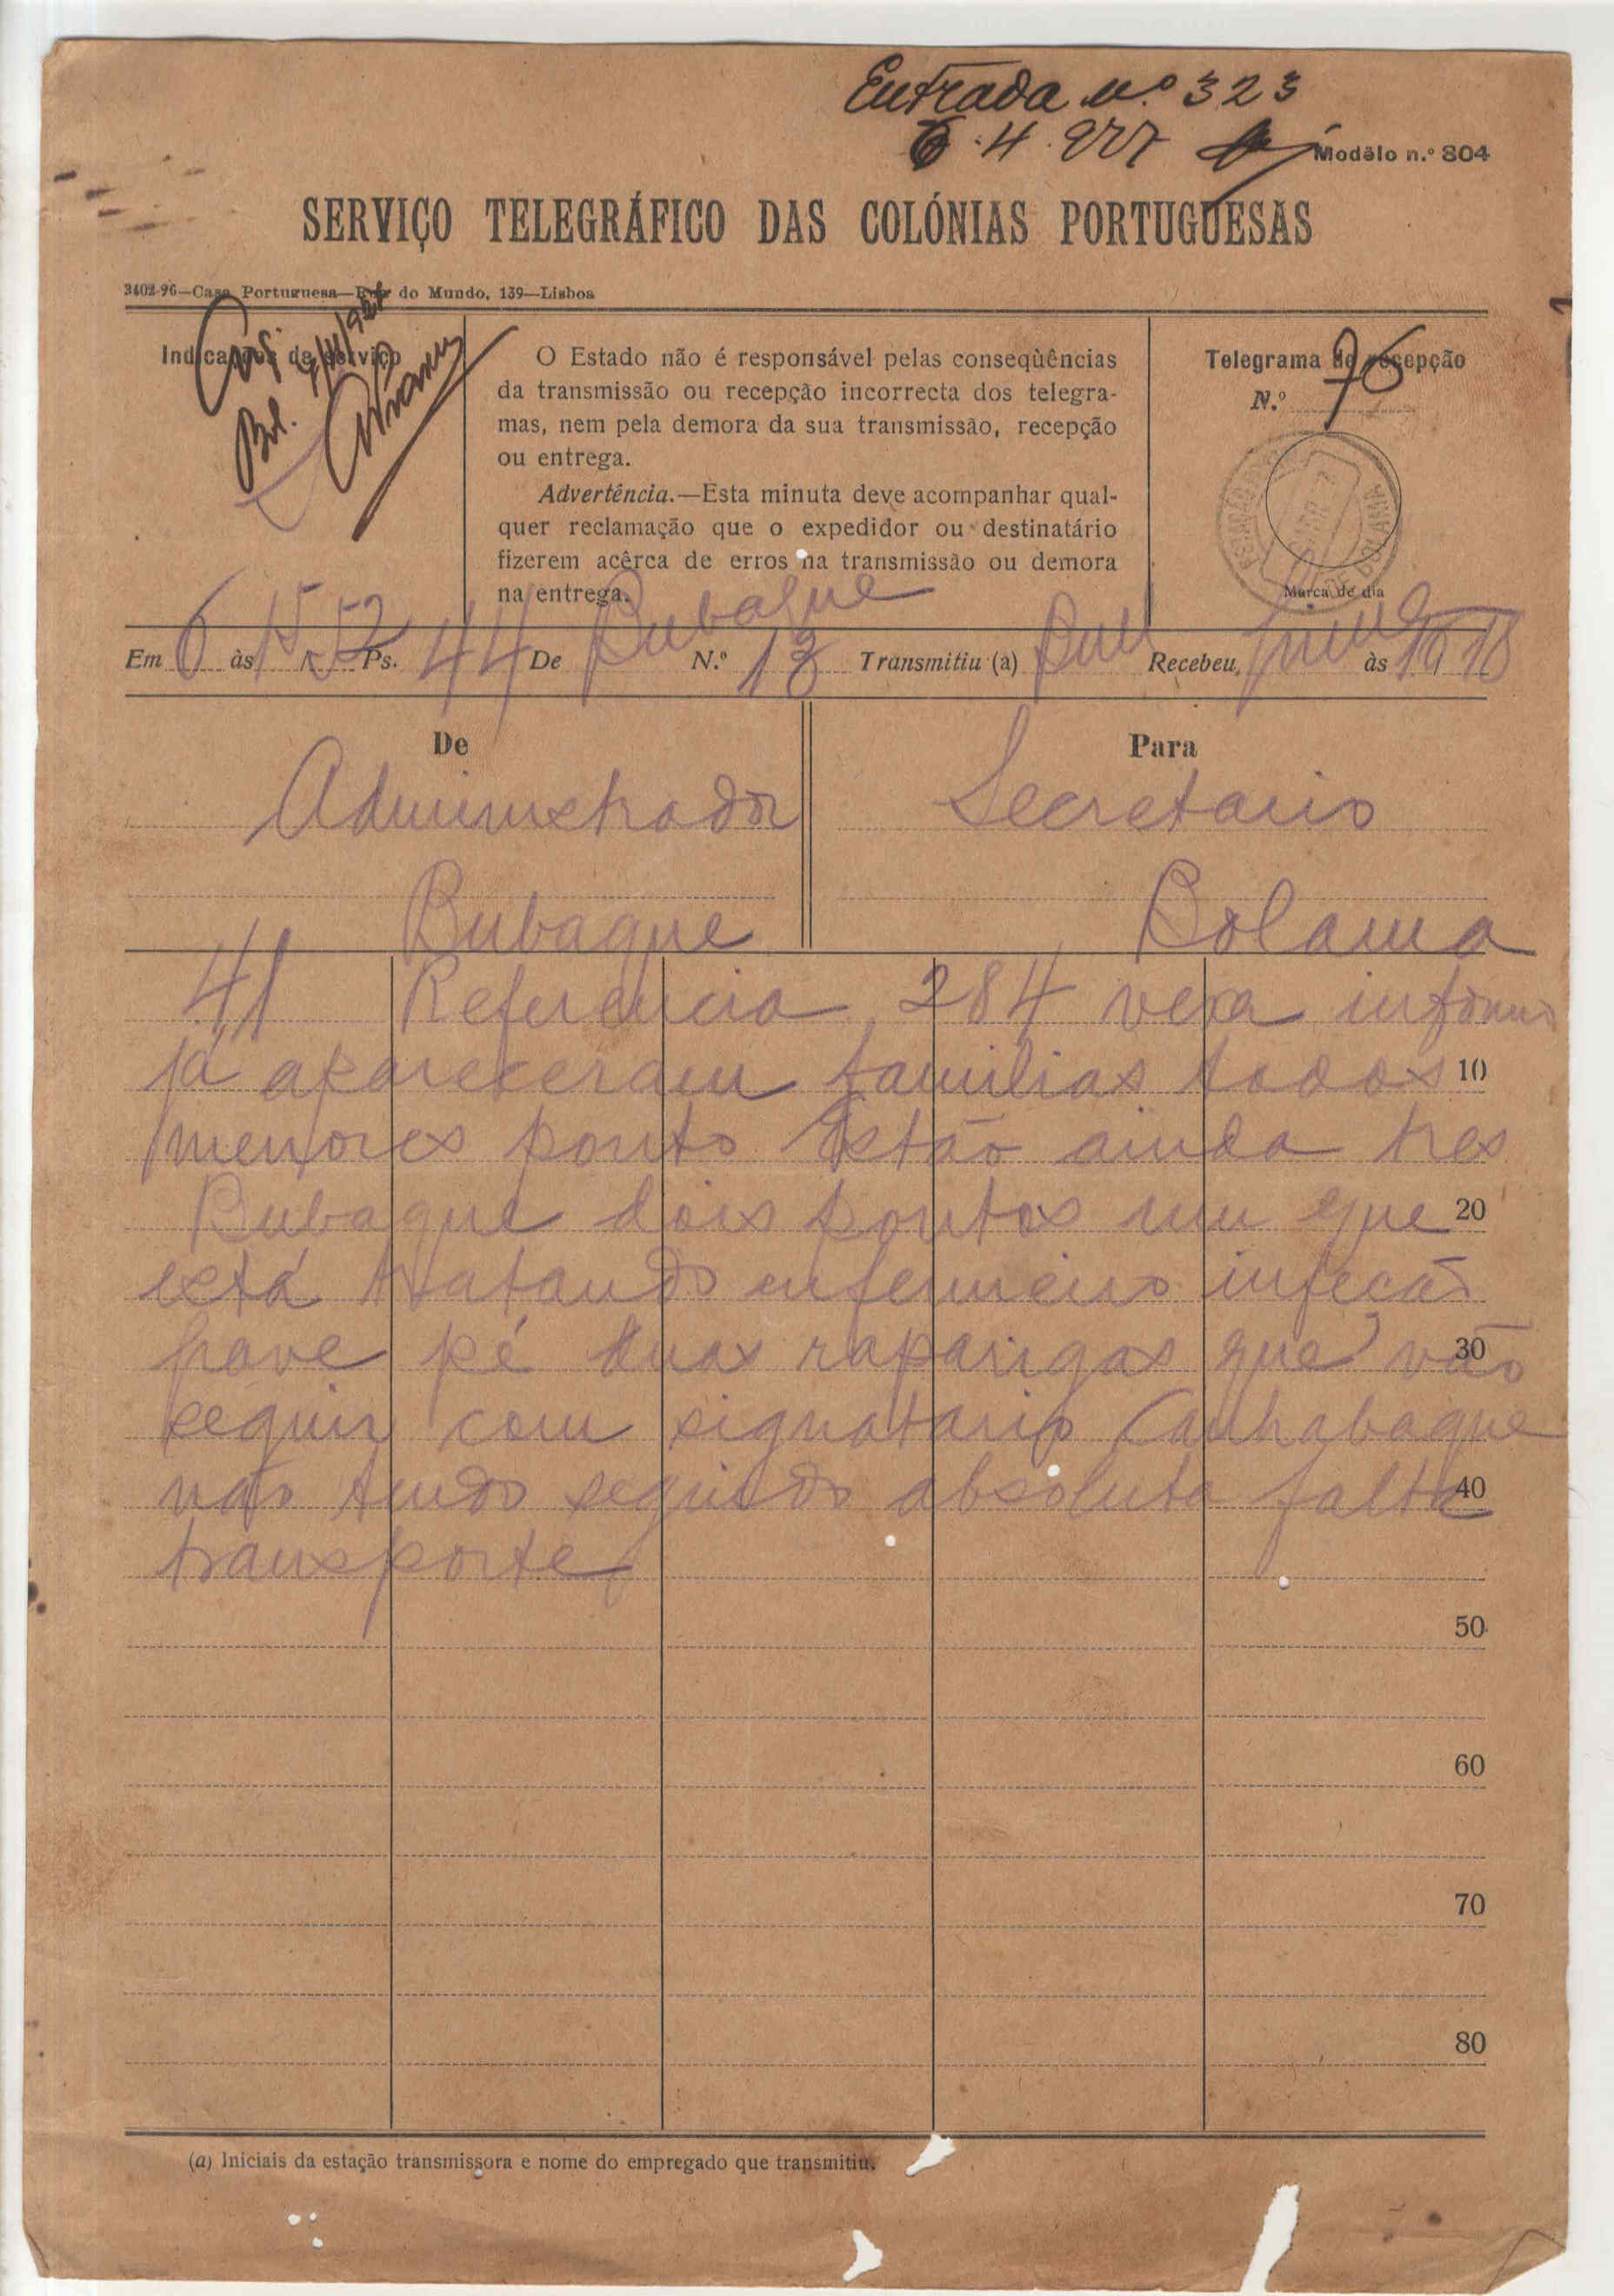 Entrada n.º 323
6.4.927
Modêlo n.º 804
SERVIÇO TELEGRÁFICO DAS COLÓNIAS PORTUGUESAS
3402-96—Casa Portuguesa—Rua do Mundo, 139—Lisboa
Indicações de serviço
Bol.
O Estado não é responsável pelas conseqùências
da transmissão ou recepção incorrecta dos telegra-
mas, nem pela demora da sua transmissão, recepção
ou entrega.
Advertência.—Esta minuta deve acompanhar qual-
quer reclamação que o expedidor ou destinatário
fizerem acêrca de erros na transmissão ou demora
na entrega.
Telegrama de recepção
N.º 76
Marca de dia
Em 6 às 15 52 Ps. 44 De Bubaque N.º 13 Transmitiu (a) Bul Recebeu, às 16 18
De
Para
Administrador
Secretario
Bubaque
Bolama
41 Referencia 284 vexa informo
já apareceram familias todos 10
menores ponto Estão ainda tres
Bubaque dois pontos um que 20
está tratando enfermeiro infecão
grave pé duas raparigas que vão 30
seguir com signatario Canhabaque
não tendo seguido absoluta falta 40
transporte
50
60
70
80
(a) Iniciais da estação transmissora e nome do empregado que transmitiu.